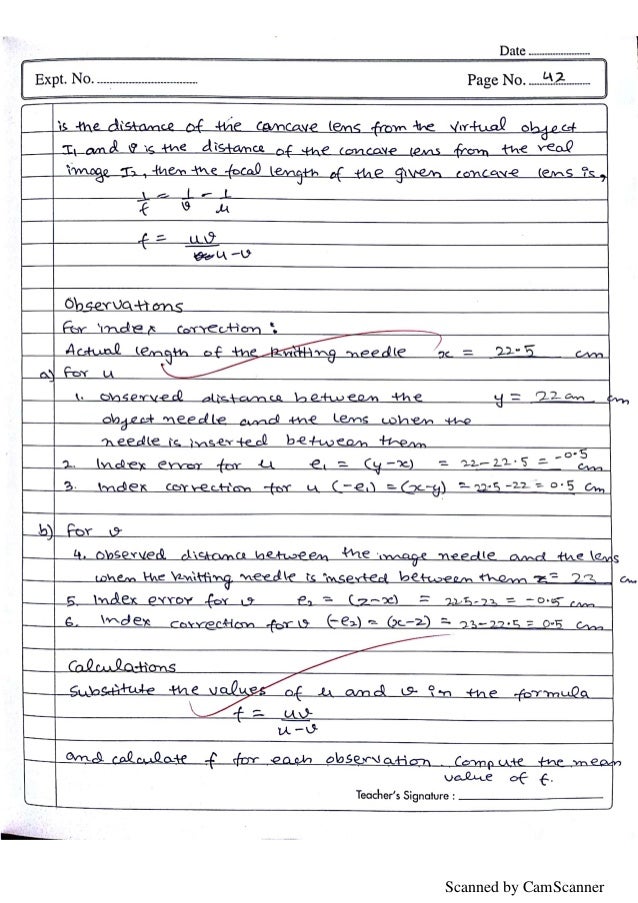 Date
Expt. No. Page No. 42
is the distance of the concave lens from the virtual object
I₁ and v is the distance of the concave lens from the real
image I₂, then the focal length of the given concave lens is,
1/f = 1/v - 1/u
f = uv/u-v
Observations
For index correction :
Actual length of the knitting needle x = 22.5 cm
a) For u
1. observed distance between the y = 22 cm cm
object needle and the lens when the
needle is inserted between them
2. Index error for u e₁ = (y-x) = 22-22.5 = -0.5 cm
3. Index correction for u (-e₁) = (x-y) = 22.5-22 = 0.5 cm
b) For v
4. observed distance between the image needle and the lens
when the knitting needle is inserted between them z = 23 cm
5. Index error for v e₂ = (z-x) = 22.5-23 = -0.5 cm
6. Index correction for v (-e₂) = (x-z) = 23-22.5 = 0.5 cm
Calculations
Substitute the values of u and v in the formula
f = uv/u-v
and calculate f for each observation. Compute the mean
value of f.
Teacher's Signature :
Scanned by CamScanner